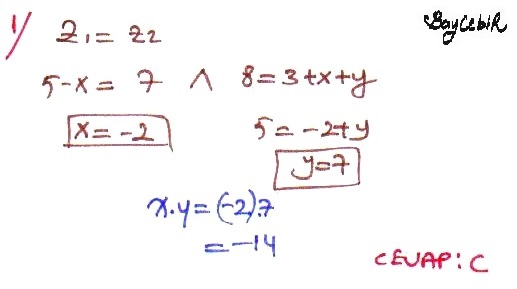 1) z₁ = z₂
BayCebiR
5-x = 7 ∧ 8 = 3+x+y
x = -2 5 = -2+y
y = 7
x.y = (-2).7
= -14
CEVAP: C